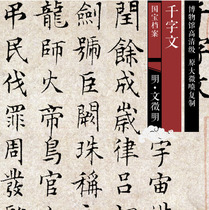 博物馆高清级 原大微喷复制
千字文
国宝档案
明·文徵明
宇宙
閏餘成歲律呂
劍號巨闕珠稱
龍師火帝鳥官
民伐罪周發